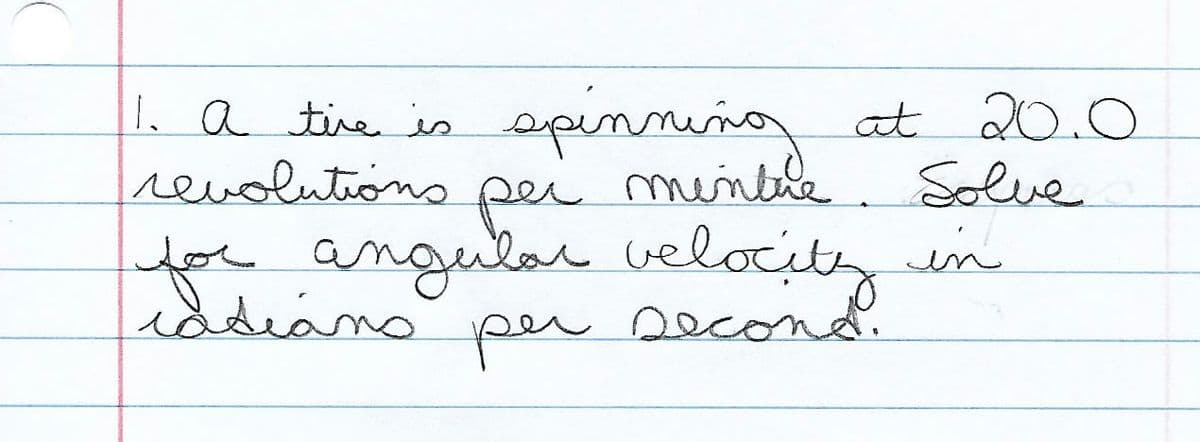 1. A tire is spinning at 20.0
revolutions per mintue. Solve
for angular velocity in
radians per second.